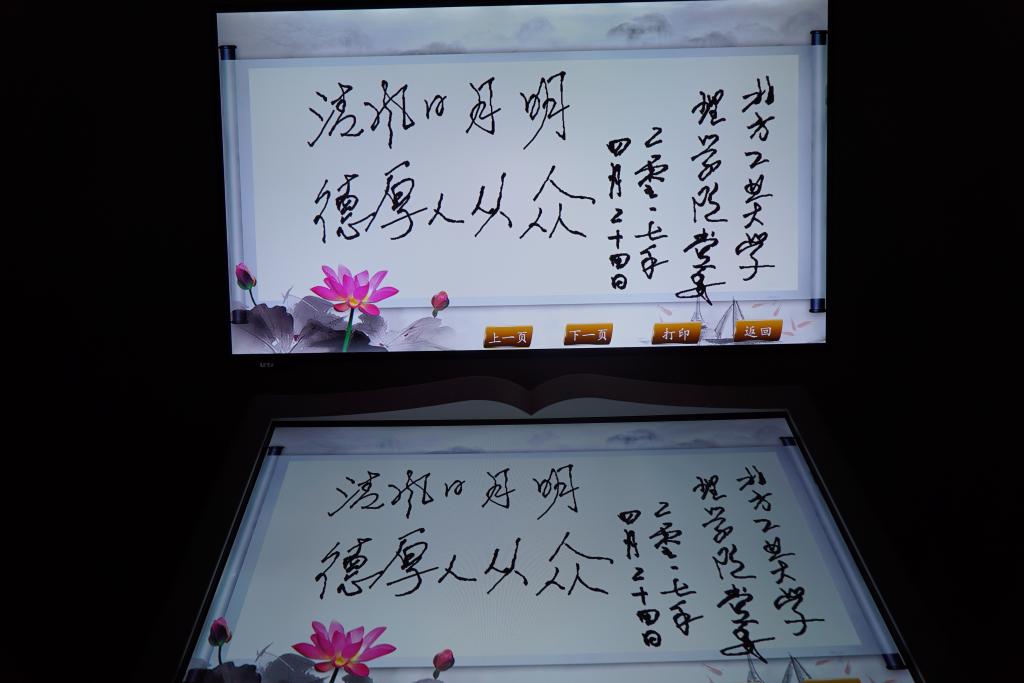 清风日月明
德厚人从众
北方工业大学
理学院党委
二零一七年
四月二十四日
上一页
下一页
打印
返回
清风日月明
德厚人从众
北方工业大学
理学院党委
二零一七年
四月二十四日